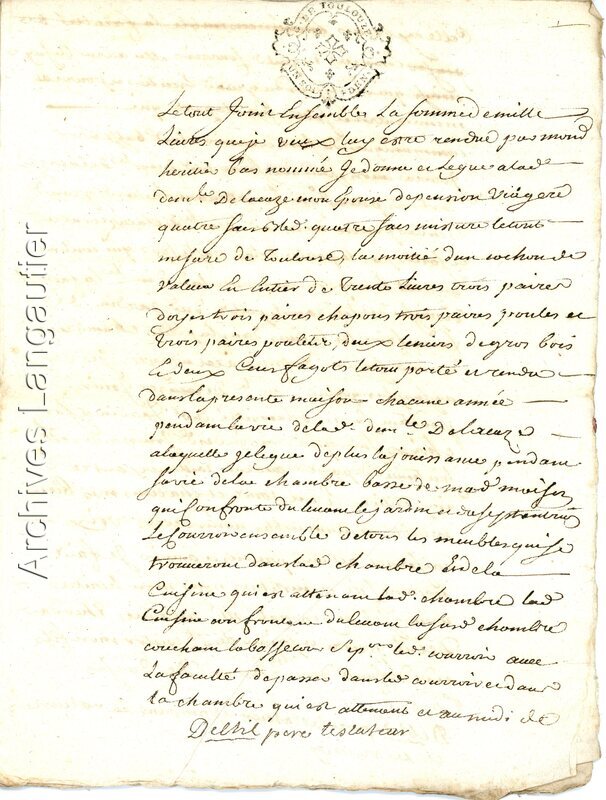 DE TOULOUSE
Le tout Joint Ensembles La somme de mille
Livres que je veux luy estre rendue par mond
heritier bas nommé Je donne et Legue a lad
dem.lle Delecuze mon Epouse de pension Viagere
quatre sacs bled quatre sacs mixture le tout
mesure de Toulouse, la moitié d'un cochon de
valeur En Entier de Trente Livres trois paires
doyes trois paires chapons trois paires poules et
trois paires poulets, deux de gros bois
Et deux Cens fagots le tout porté et rendu
dans la presente maison chacune année
pendant la vie de lad. dem.lle Delecuze
a laquelle je legue de plus la jouissance pendant
sa vie de la chambre basse de mad. maison
qui Confronte du levant le jardin et du septentrion
Le Courroir ensemble de tous les meubles qui se
trouveront dans lad chambre Et de la
Cuisine qui est attenant lad. chambre lad
Cuisine confrontant du levant la susd. chambre
couchant la bassecour Sep.on led. courroir avec
La faculté de passer dans led. courroir et dans
la chambre qui est attenant et au midi de
Delhil pere testateur
Archives Langautier